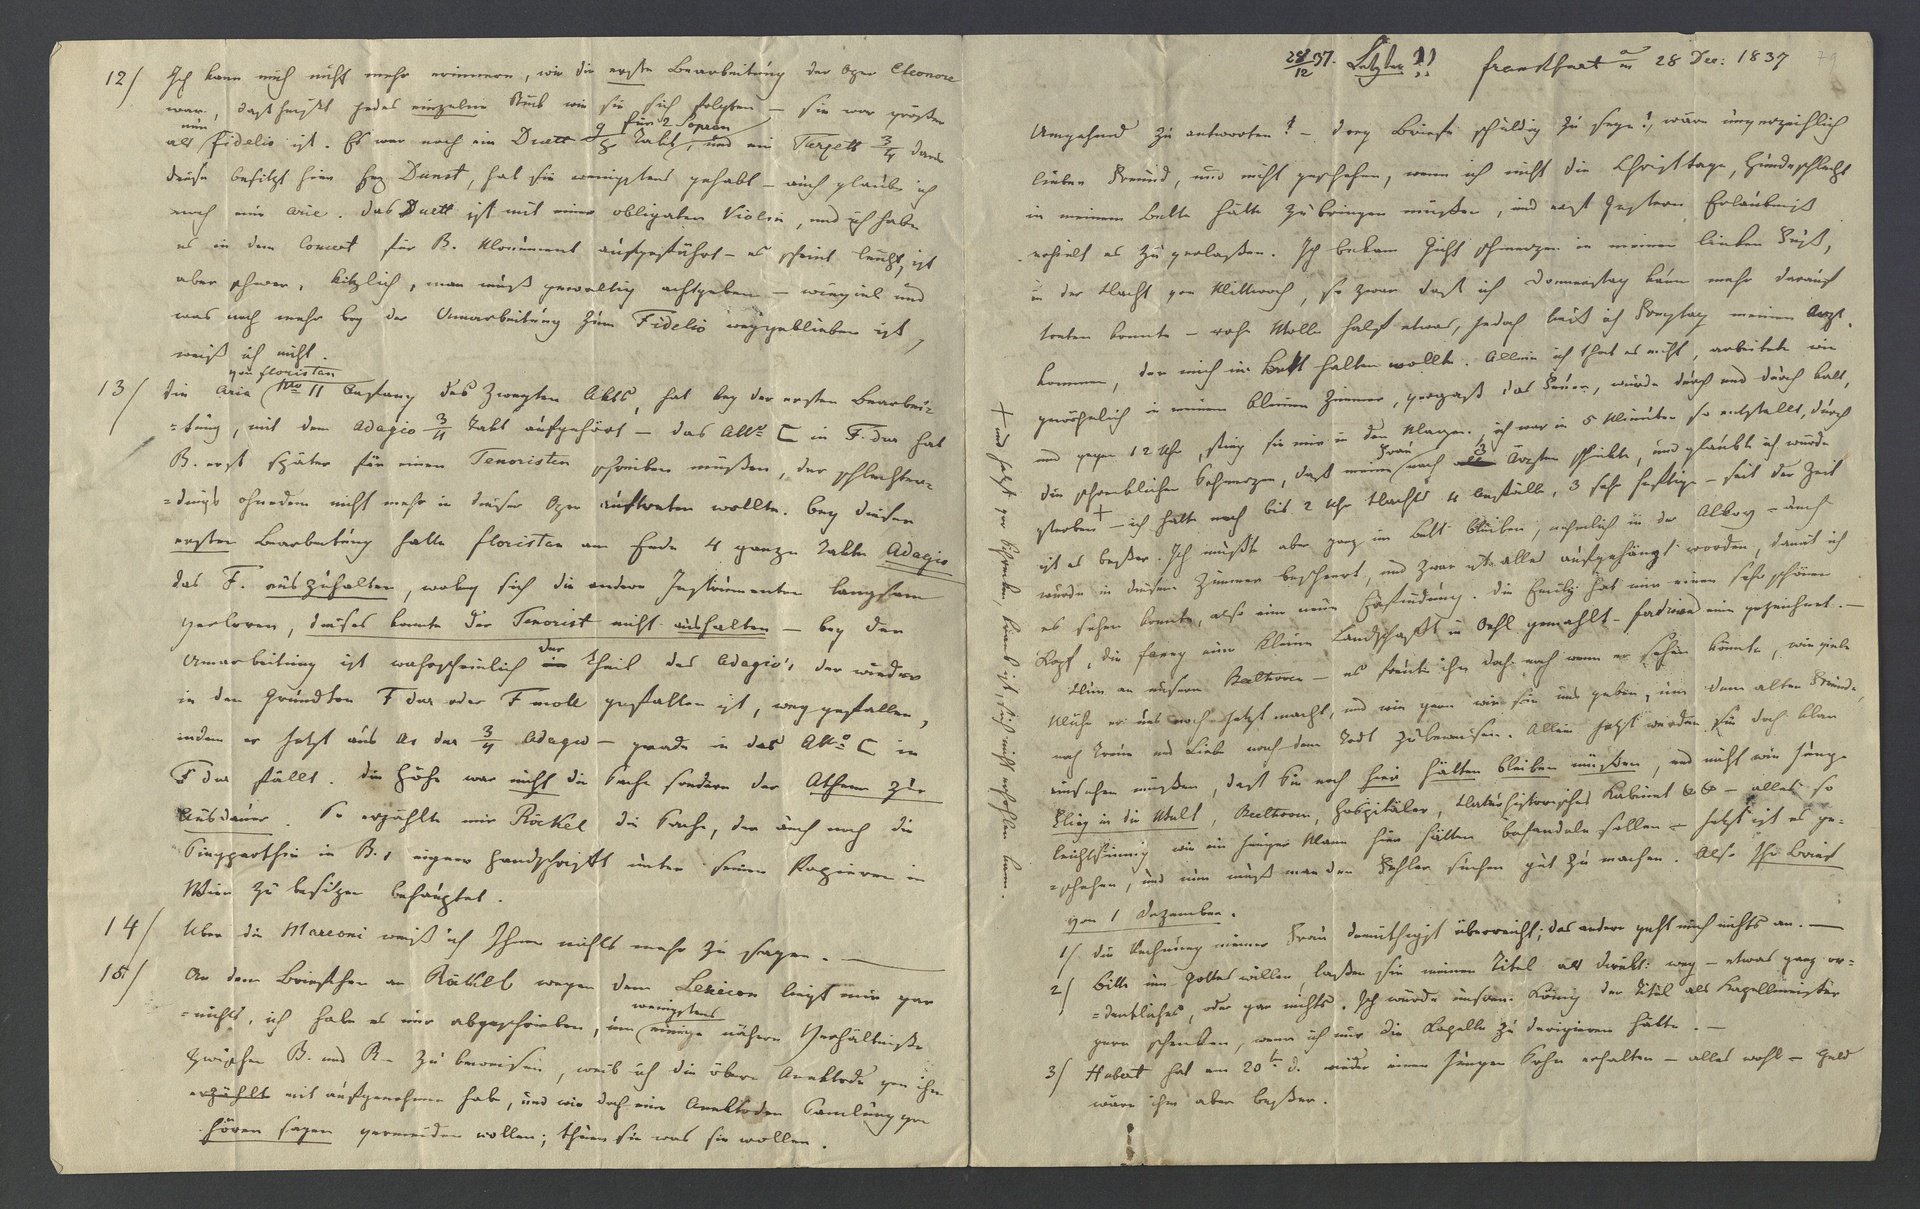 12/ Ich kann mich nicht mehr erinnern, wie die erste Bearbeitung der Oper Eleonore
war, dasheißt jedes einzelne Stück wie sie sich folgten – sie war größer
nun
als Fidelio ist. Es war noch ein Duett 9/8 Takt, für 2 Sopran und ein Terzett 3/4 dar
diese besitzt hier Hrg Dunst, hat sie wenigstens gehabt – auch glaube ich
noch eine Arie. das Duett ist mit einer obligaten Violin, und ich habe
es in dem Concert für B. Monument aufgeführt – es scheint leicht, ist
aber schwer, kitzlich, man muß gewaltig achtgeben – wieviel und
was noch mehr bey der Umarbeitung zum Fidelio weggeblieben ist,
weiß ich nicht.
von Florestan
13/ die Aria No 11 Anfang des zweyten Akts, hat bey der ersten Bearbei-
=tung, mit dem Adagio 3/4 Takt aufgehört – das Allo C in F. dur hat
B. erst später für einen Tenoristen schreiben müßen, der schlechter-
=dings ohnedem nicht mehr in dieser Oper auftreten wollte. bey dieser
ersten Bearbeitung hatte Florestan am Ende 4 ganze Takte Adagio
das F. auszuhalten, wobey sich die andern Instrumenten langsam
verloren, dieses konnte der Tenorist nicht aushalten – bey der
Umarbeitung ist wahrscheinlich der Theil des Adagio's, der wieder
in den Grundton F dur oder F moll gefallen ist, weg gefallen,
indem er jetzt aus As dur 3/4 Adagio – grade in das Allo C in
F dur fällt. die Höhe war nicht die Sache sondern der Athem zur
Ausdauer. So erzählte mir Röckel die Sache, der auch noch die
Singparthie in B.s eigener Handschrift unter seinen Papieren in
Wien zu besitzen behauptet.
14/ Über die Marconi weiß ich Ihnen nichts mehr zu sagen. —
15/ An dem Briefchen an Röckel wegen dem Lexicon liegt mir gar
=nichts, ich habe es nur abgeschrieben, um wenigstens einige nähern Verhältniße
zwischen B. und R– zu beweisen, weil ich die obern Anektode von ihm
erzählt mit aufgenohmen habe, und wir doch eine Anektoden Samlung von
hören sagen vermeiden wollen; thuen sie was sie wollen.
28/12 37. Letzter!! Frankfurt a/m 28 Dec: 1837
Umgehend zu antworten! – drey Briefe schuldig zu seyn!, wäre unverzeihlich
lieber Freund, und nicht geschehen, wenn ich nicht die Christtage, hundeschlecht
in meinem Bette hätte zubringen müßen, und erst gestern Erlaubniß
erhielt es zu verlaßen. Ich bekam Gicht schmerzen in meinen linken Fuß,
in der Nacht von Mittwoch, so zwar daß ich Donnerstag kaum mehr darauf
treten konnte – rohe Wolle half etwas, jedoch ließ ich Freytag meinen Arzt
kommen, der mich im Bett halten wollte. Allein ich that es nicht, arbeitete wie
gewöhnlich in meinem kleinen Zimmer, vergaß das Feuer, wurde durch und durch kalt,
und gegen 12 Uhr, stieg sie mir in den Magen, ich war in 5 Minuten so entstellt, durch
die schrecklichen Schmerzen, daß meine Frau nach 3 Ärzten schickte, und glaubte ich würde
sterben + – ich hatte noch bis 2 Uhr Nachts 4 Anfälle, 3 sehr heftige – seit der Zeit
ist es beßer. Ich mußte aber ganz im Bett bleiben, nehmlich in der Alkov – auch
wurde in diesem Zimmer bescheert, und zwar ist alles aufgehängt worden, damit ich
es sehen konnte, also eine neue Erfindung. die Emily hat mir einen sehr schönen
Kopf, die Fanny eine kleine Landschaft in Oehl gemahlt – Ferdinand eine gezeichnet. —
Nun an unsern Beethoven – es freute ihn doch noch wenn er sehen könnte, wie viele
Mühe er uns noch jetzt macht, und wie gern wir sie uns geben, um dem alten Freunde,
noch Treue und Liebe nach dem Todt zu beweisen. Allein jetzt werden Sie doch klar
einsehen müßen, daß Sie noch hier hätten bleiben müßen, und nicht wie junge
Flieg in die Welt, Beethoven, Hospitäler, Naturhistorisches Kabinet &&– alles so
leichtsinnig wie ein junger Mann hier hätten behandeln sollen – jetzt ist es ge-
=schehen, und nun muß man den Fehler suchen gut zu machen. Also Ihr Brief
von 1 Dezember.
1/ die Rechnung meiner Frau demüthigst überreicht; das andere geht mich nichts an. —
2/ bitte um Gottes willen, laßen sie meinen Titel als Direkt: weg – etwas ganz or-
=dentliches, oder gar nichts. Ich würde unserm König der Titel als Kapellmeister
gern schenken, wenn ich nur die Kapelle zu dirigieren hätte. —
3/ Hubert hat am 20ten d. wieder einen jungen Sohn erhalten – alles wohl – Geld
wäre ihm aber beßer.
+ und jetzt vor Schrecken, krank ist, sich nicht erholen kann.